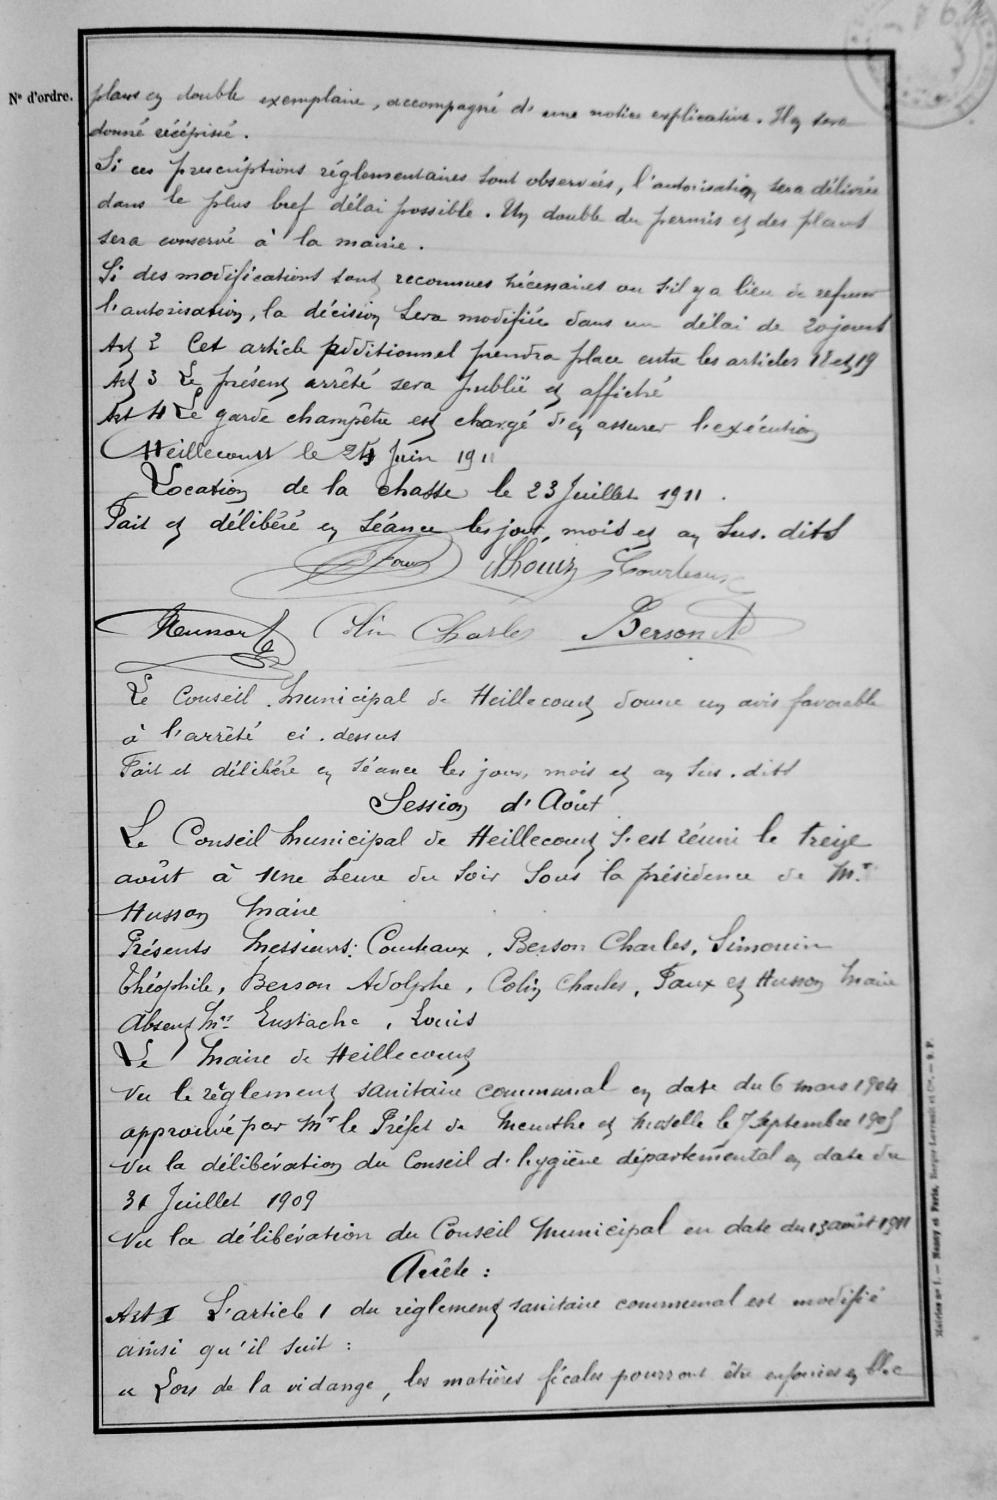 Nº d'ordre.
plans en double exemplaire, accompagné d'une notice explicative. Il en sera
donné récépissé.
Si ces prescriptions réglementaires sont observées, l'autorisation sera délivrée
dans le plus bref délai possible. Un double du permis et des plans
sera conservé à la mairie.
Si des modifications sont reconnues nécessaires ou s'il y a lieu de refuser
l'autorisation, la décision sera modifiée dans un délai de 20 jours
Art 2 Cet article additionnel prendra place entre les articles 18 et 19
Art 3 Le présent arrêté sera publié et affiché
Art 4 Le garde champêtre est chargé d'en assurer l'exécution
Heillecourt le 24 Juin 1911
Location de la chasse le 23 Juillet 1911.
Fait et délibéré en séance les jour, mois et an sus-dits
Colin Charles Berson A
Le Conseil Municipal de Heillecourt donne un avis favorable
à l'arrêté ci-dessus
Fait et délibéré en séance les jours, mois et an sus-dits
Session d'Août
Le Conseil Municipal de Heillecourt s'est réuni le treize
août à une heure du soir sous la présidence de Mr
Husson Maire
Présents Messieurs: Courteaux, Berson Charles, Simonin
Théophile, Berson Adolphe, Colin Charles, Faux et Husson Maire
Absent Mrs Eustache, Louis
Le Maire de Heillecourt
Vu le règlement sanitaire communal en date du 6 mars 1904
approuvé par Mr le Préfet de Meurthe et Moselle le 7 Septembre 1905
Vu la délibération du Conseil d'hygiène départemental en date du
31 Juillet 1909
Vu la délibération du Conseil Municipal en date du 13 août 1911
Arrête :
Art I L'article 1 du règlement sanitaire communal est modifié
ainsi qu'il suit :
" Lors de la vidange, les matières fécales pourront être enfouies en bloc
Mairies nº 1. — Nancy et Paris, Berger-Levrault et Cie. — 9 F.